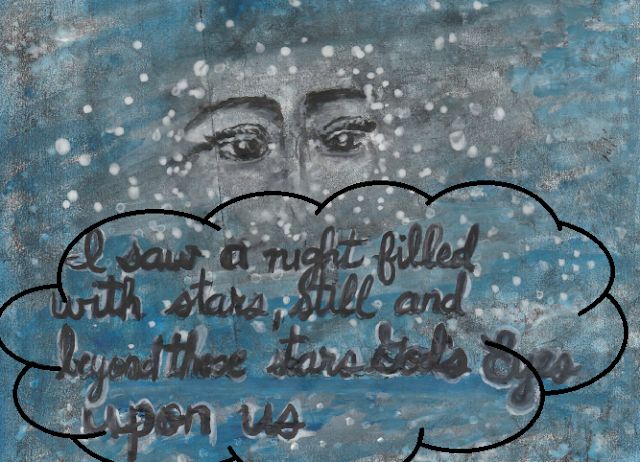 I saw a night filled
with stars, still and
beyond those stars God's Eyes
upon us